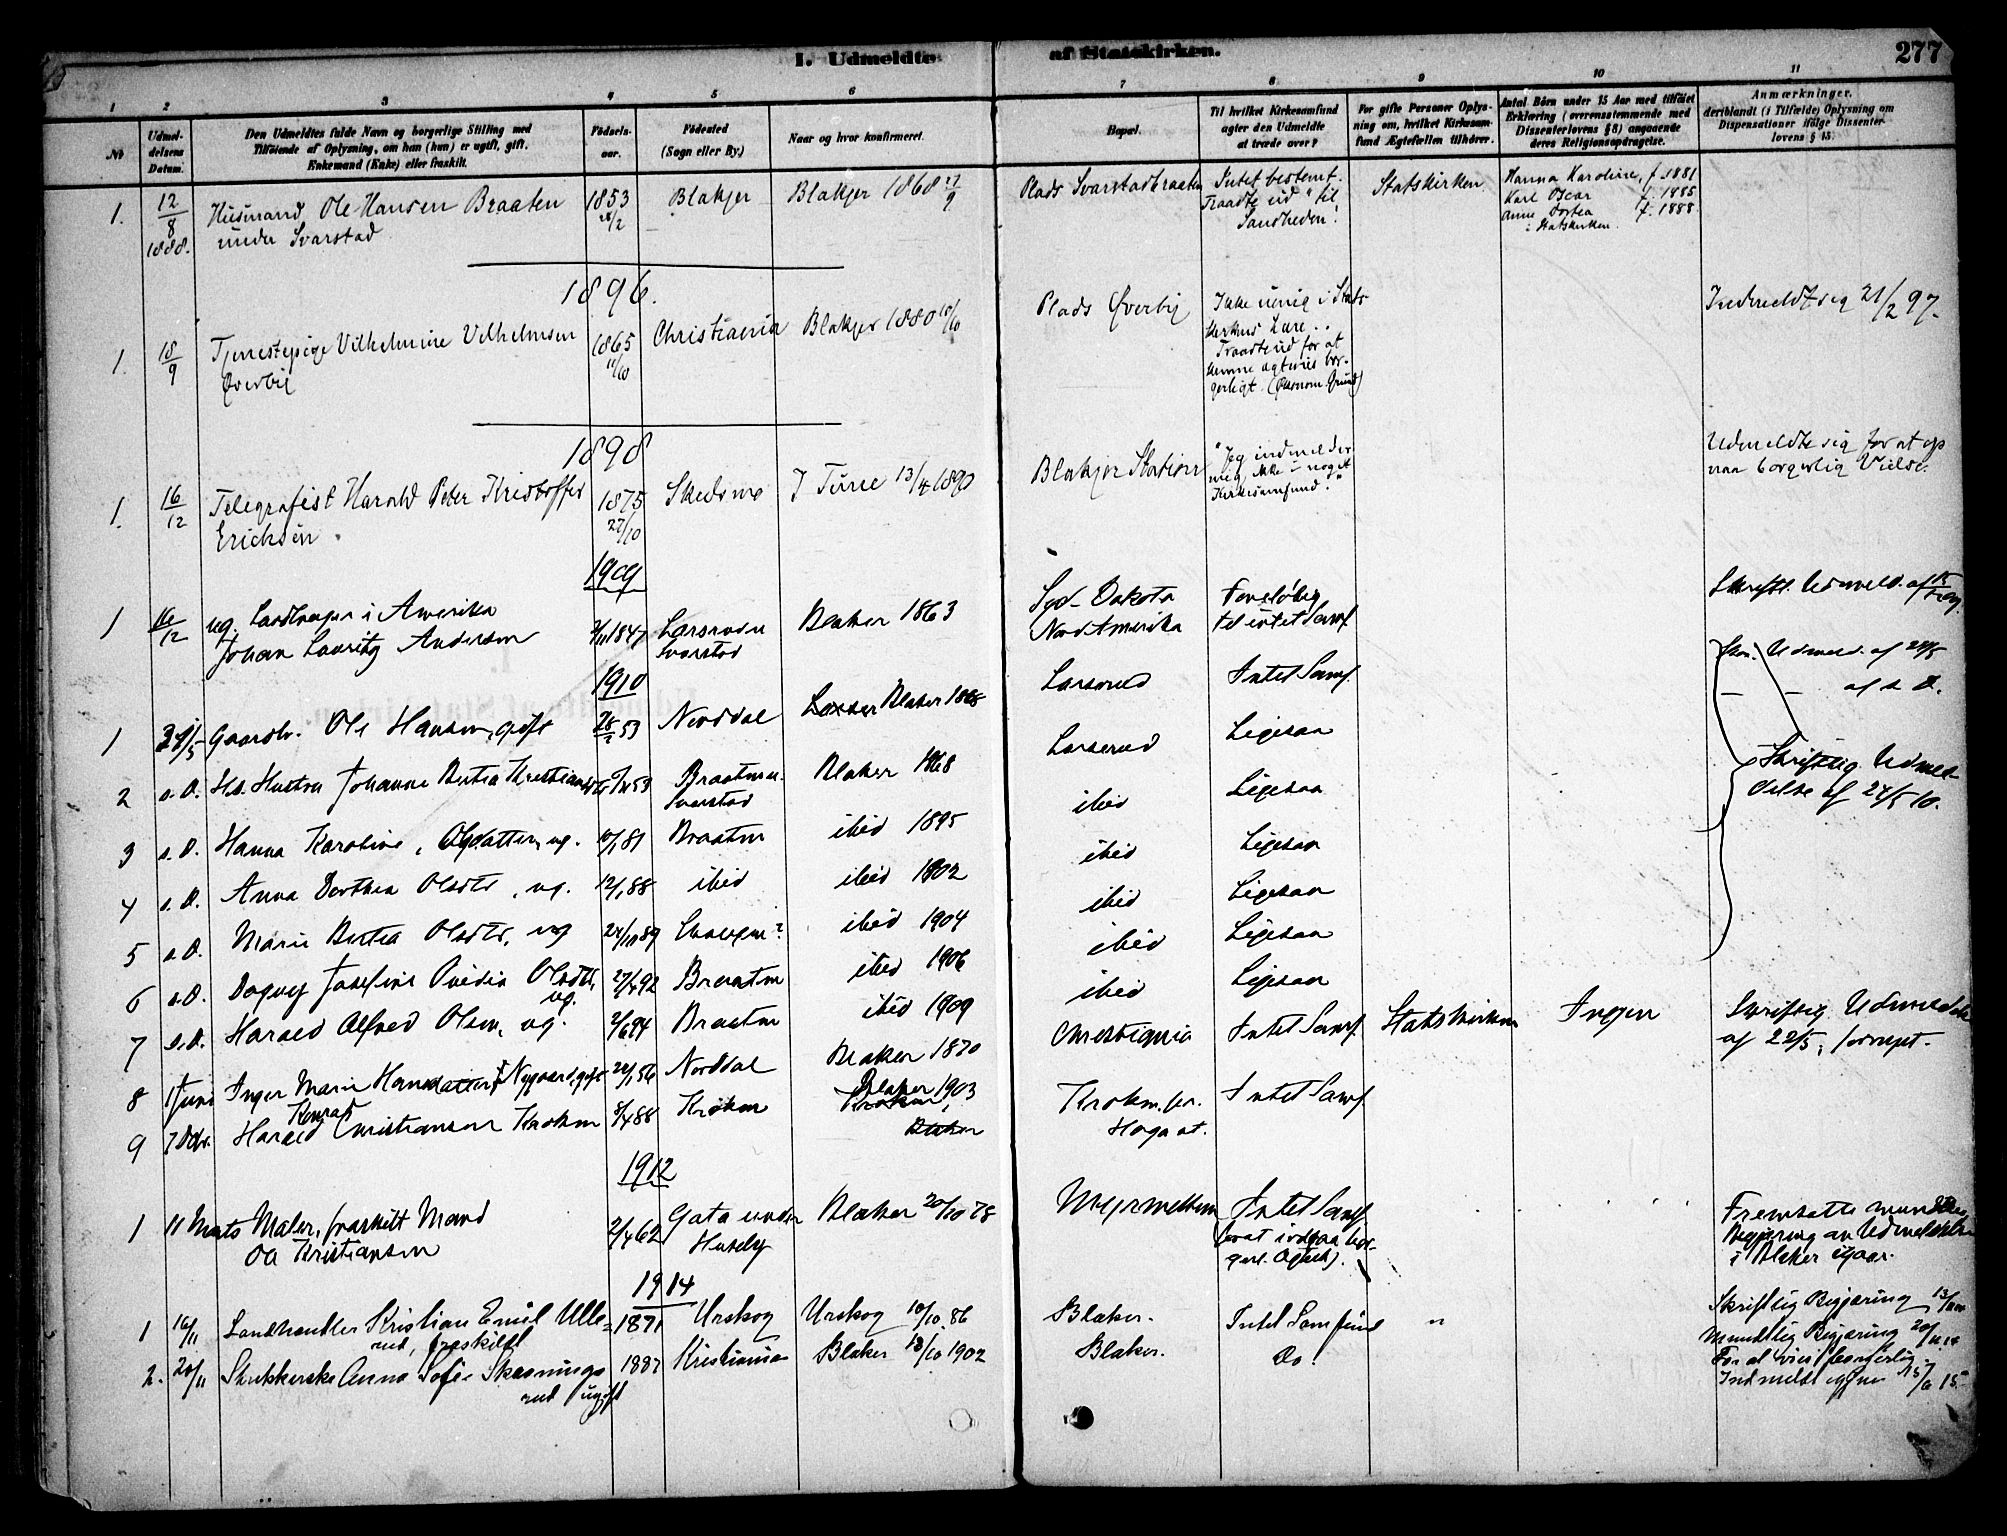 I. Udmeldte af Statskirken.
277
1 2 3 4 5 6 7 8 9 10 11
No
Udmeldelsens Datum.
Den Udmeldtes fulde Navn og borgerlige Stilling med
Tilføiende af Oplysning, om han (hun) er ugift, gift,
Enkemand (Enke) eller fraskilt.
Fødselsaar.
Fødested
(Sogn eller By.)
Naar og hvor konfirmeret.
Bopæl.
Til hvilket Kirkesamfund
agter den Udmeldte
at træde over?
For gifte Personer Oplys-
ning om, hvilket Kirkesam-
fund Ægtefællen tilhører.
Antal Børn under 15 Aar med tilføiet
Erklæring (overensstemmende med
Dissenterlovens § 8) angaaende
deres Religionsopdragelse.
Anmærkninger,
deriblandt (i Tilfælde) Oplysning om
Dispensationer ifølge Dissenter-
lovens § 15.
1. 12/8 1888. Husmand Ole Hansen Braaten 1853 28/2 Blakjer Blakjer 1868 27/9 Plads Svarstadbraaten Intet bestemt. Statskirken Hanna Karoline, f. 1881
under Svarstad Traadte ud "til Karl Oscar f. 1885
Sandheden! Anne Dortea f. 1888
i Statskirken.
1896.
1. 18/9 Tjenestepige Vilhelmine Vilhelmsen 1865 11/10 Christiania Blakjer 1880 10/10 Plads Øverby Ikke uenig i Stats- Indmeldt sig 21/2 97.
Øverby kirkens Lære..
Traadte ud for at
kunne ægtevies bor-
gerligt. (Økonom. Grund)
1898
1. 16/12 Telegrafist Harald Peter Kristoffer 1875 27/10 Skedsmo I Furre 13/4 1890 Blakjer Station "Jeg indmelder Udmeldte sig for at op
Erichsen. mig ikke i noget naa borgerlig Vielse.
Kirkesamfund."
1909
1 16/12 ug. Landbruger i Amerika 1847 Larsrud u Blaker 1863 Syd-Dakota Foreløbig Skriftl. Udmeld. af
Johan Lauritz Andersen Svarstad Nord Amerika til intet Samf.
1910
1 Gaardbr. Ole Hansen, gift 28/2 53 Norddal Blaker 1868 Larserud Intet Samf. Udmeld. af 24/5
2 s. D. Hs. Hustru Johanne Bertea Kristiansdtr 53 Braaten u. Blaker 1868 Larserud Ligesaa af s. D.
Svarstad
3 s. D. Hanna Karoline, Olsdatter, ug. 81 Braaten ibid 1895 ibid Ligesaa Skriftlig Udmel
4 s. D. Anna Dorthea Olsdtr, ug. 12/1 88 ibid ibid 1902 ibid Ligesaa delse af 24/5 10.
5 s. D. Marie Bertea Olsdtr, ug 24/10 89 ibid 1904 ibid Ligesaa
6 s. D. Dagny Josefine Olsdtr, ug. 27/4 92 Braaten ibid 1906 ibid Ligesaa
7 s. D. Harald Alfred Olsen, ug. 2/6 94 Braaten ibid 1909 ibid Ligesaa
8 1 Juni Inger Marie Hansdatter Nygaard, gift 22/1 56 Norddal Blaker 1870 Christiania Intet Samf. Statskirken Ingen Skriftlig Udmeldelse
af 22/5,
9 7 Dcbr. Harald Konrad Christiansen Kroken 8/4 88 Kroken Blaker 1903 Kroken pr. Intet Samf.
Blaker Haga st.
1912
1 11 Marts Maler, fraskilt Mand 2/4 62 Gata under Blaker 20/10 78 Intet Samf. Fremsatte mundtlig
Ole Kristiansen Huseby for at indgaa bor- Begjæring om Udmeldelse
gerl. Ægtesk). i Blaker igaar.
1914
1 16/11 Landhandler Kristian Emil Ulle= 1871 Urskog Urskog 10/10 86 Blaker. Intet Samfund " Skriftlig Begjæring 13/11
rud, fraskilt
2. 20/11 Anna Sofie Skaanings 1887 Kristiania Blaker 12/10 1902 Blaker. Do. Mundtlig Begjæring 20/11 14
rud ugift For at vies borgerlig.
Indmeldt igjen 15/6 15.